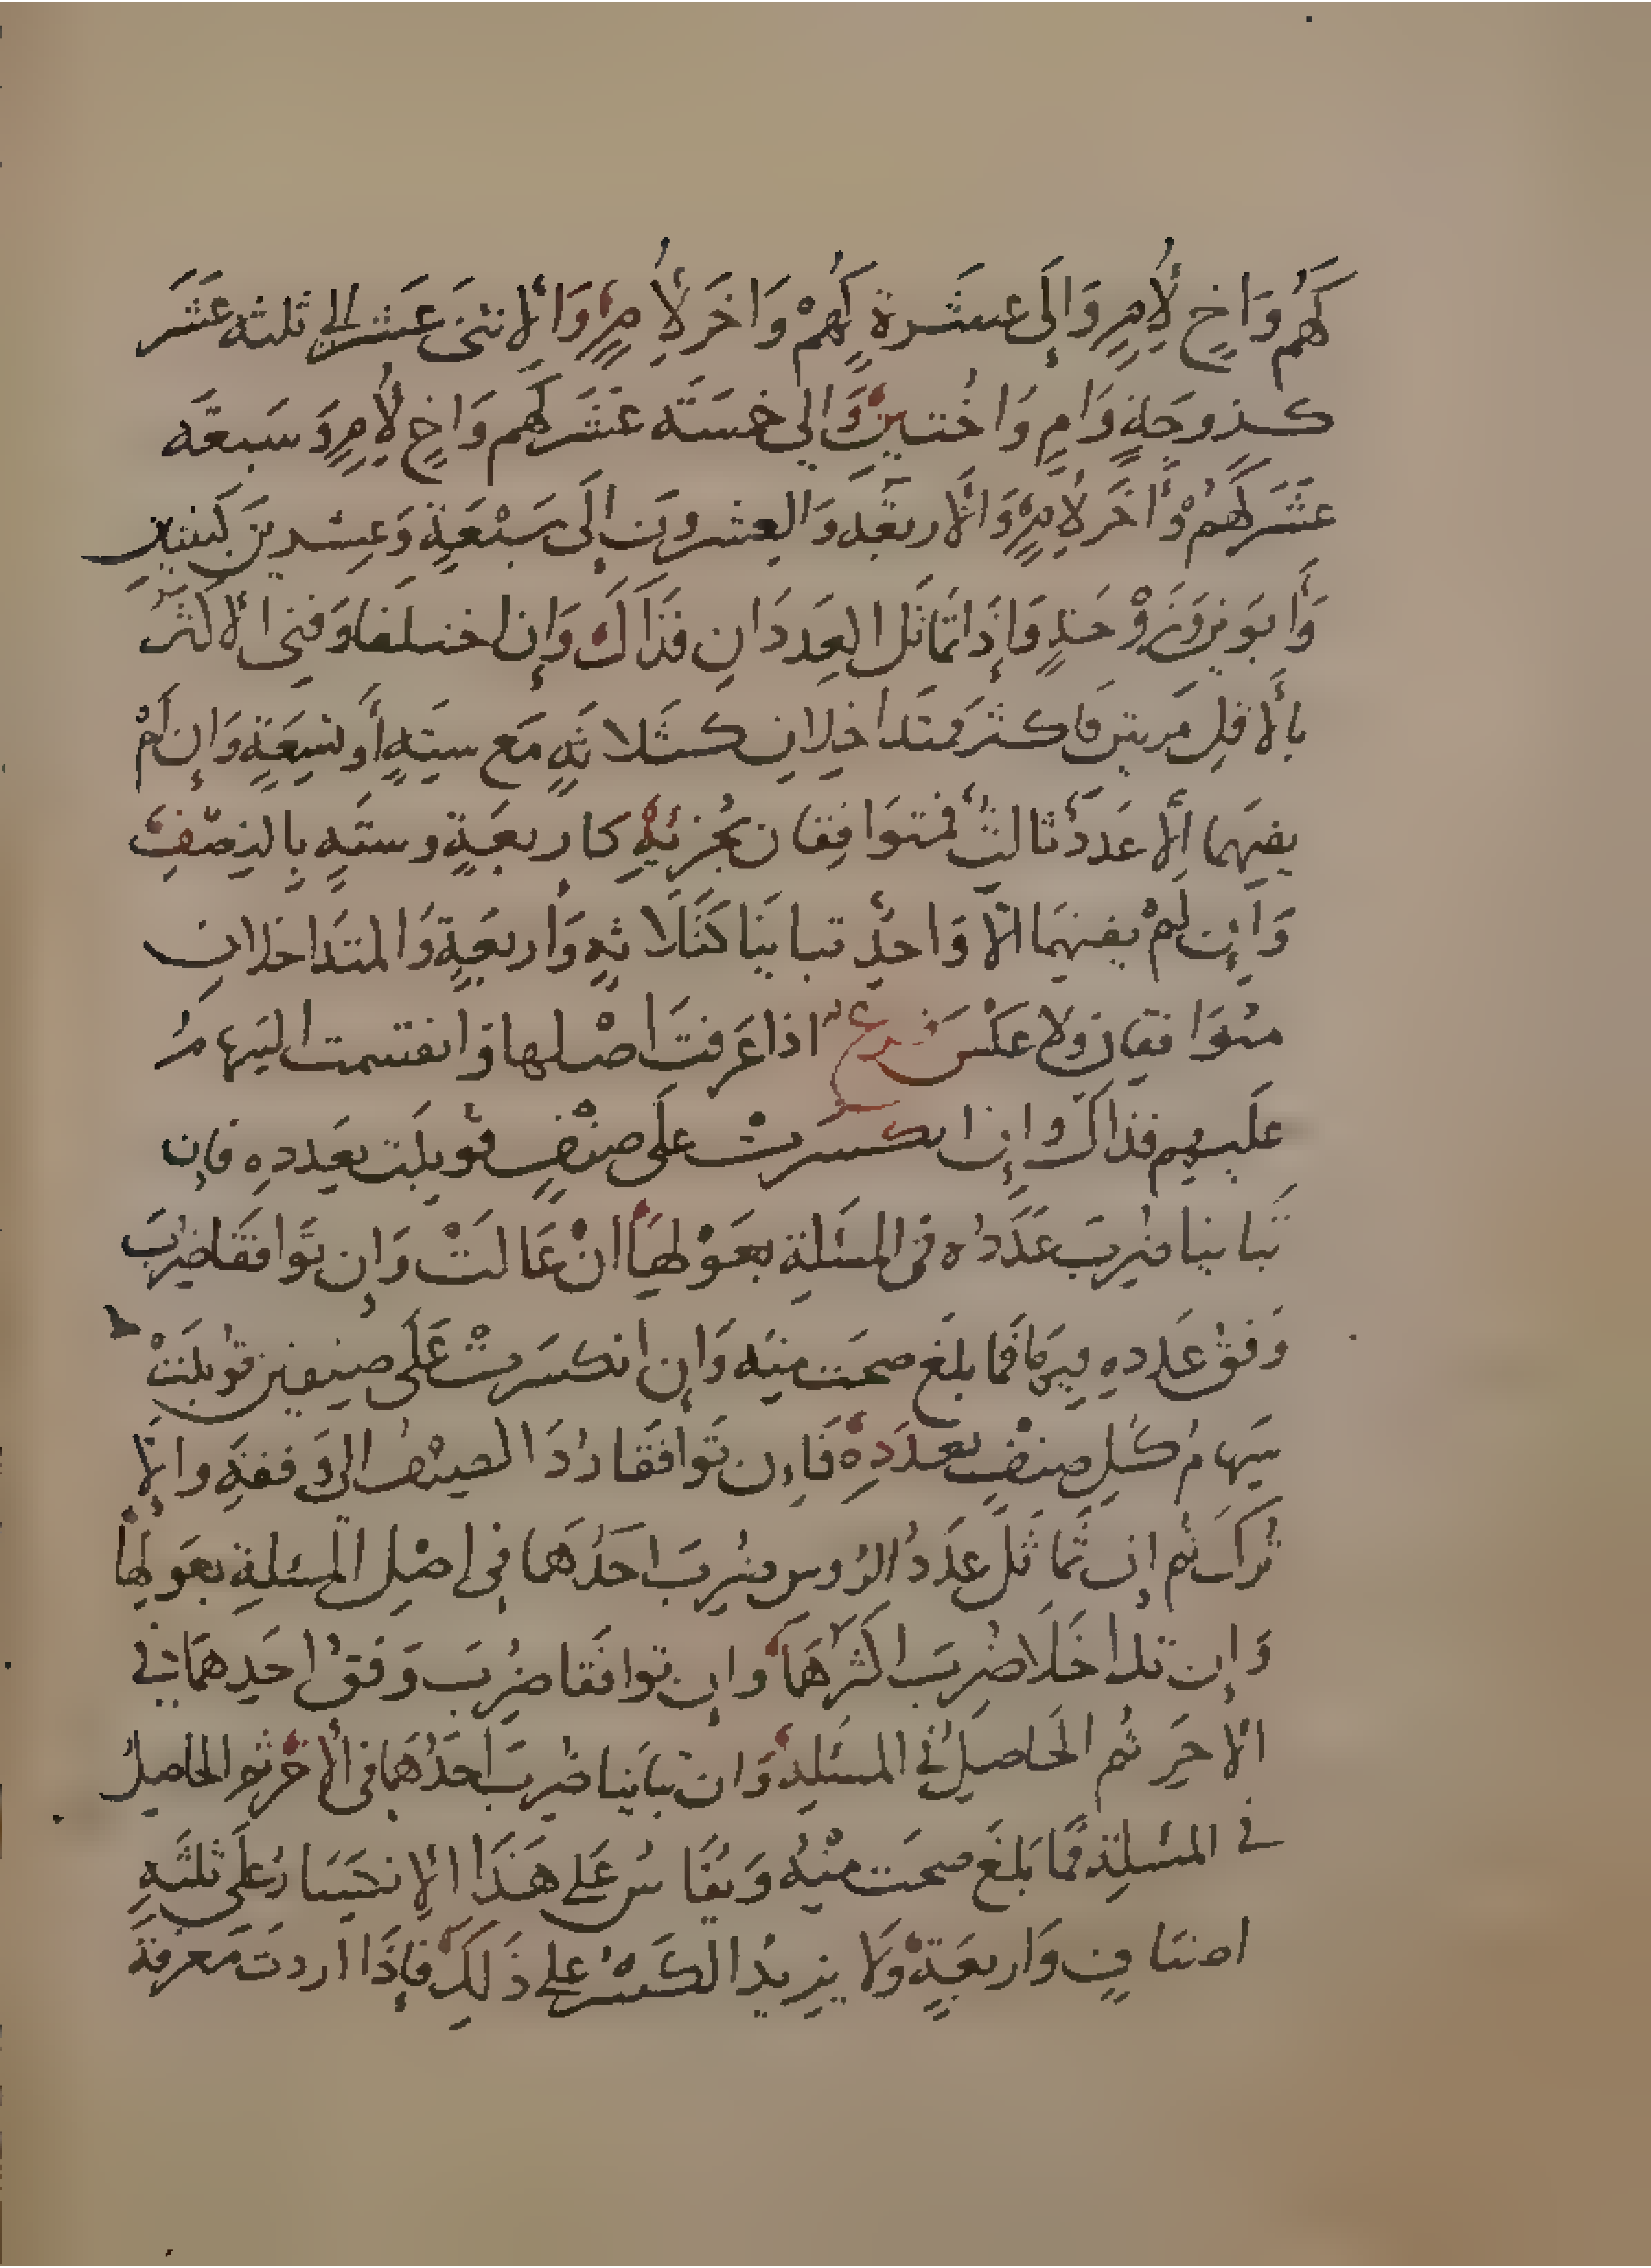 كَهُم وَاخٍ لِأُمٍ وَإِلَى عشَرة كَهُمْ وَاخَرَ لِأُمٍ وَالأثنى عَشر إلى ثلثه عَشَر
كزوجَةٍ وَامٍ وَاخُتين وَالى خمسَة عَشَر كَهُم وَاخٍ لِأُمٍ وَ سَبعَه
عَشَر كَهُمْ وَأخَرَ لِأمٍ وَالأربعَه وَالعشرون إلَى سَبْعَةٍ وَعِشرينَ كبنتين
وَأبوين وَزَوْجَةٍ فَإِذَا تمَاثَل العَدَدَانِ فذَاكَ وَإن اختلفا وَفنى الأكثَرُ
بالأقلِ مَرتين فاكثر فمتَدَاخِلانِ كثَلاثَةٍ مَع ستةٍ أو تسعَةٍ وَإن لَمْ
يفنهما إلَّا عَددٌ ثالثٌ فمتوَافِقان بجُزئهِ كاربعَةٍ وستَةٍ بِالنِصْفِ
وَإن لمْ يفنهمَا الَّا وَاحدٌ تباينَا كثَلَاثةٍ وَأربعَةٍ وَالمتدَاخلان
متوَافقان ولا عكْس فرع اذا عَرفتَ اصْلها وَانقسمت السّهامُ
علَيهم فذاكَ وإن انكسَرتْ علَى صنْفٍ قُوبلَت بعَدده فإن
تَبَاينا ضُرِبَ عَدَدُه فى المسئلة بعَوْلِهَا انْ عَالتْ وَإن تَوَافَقَا ضُرِبَ
وَفقُ عَددهِ فيهَا فمَا بلَغ صحَت منه وَإن انكسَرتْ عَلَى صنفين قُوبلَتْ
سِهامُ كُل صنفٍ بعدَدِهِ فَإن تَوَافَقَا رُدَّ الصنفُ الى وَفقهِ وَإلَّا
تُركَ ثم إن تماثَل عدَدُ الرُوس ضُربَ احَدُهَما فى اصْلِ المسئلةِ بعَولهَا
وَإن تداخَلَا ضُربَ اكثَرُهَمَا وإن توافَقا ضُرِبَ وَفقُ احَدِهمَا فى
الاخَرِ ثم الحَاصلُ فى المسئَلةِ وَان تبَاينَا ضُربَ أحَدُهمَا فى الأخَرِ ثم الحاصلُ
فى المسْئلةِ فمَا بَلغَ صحَت منْهُ وَيُقَاسُ عَلى هَذَا الإنكسَارُ عَلى ثلثَةِ
اصنَافٍ وَاربعَةٍ وَلَا يزيدُ الكَسْرُ على ذَلِكَ فإذَا اردتَ مَعرفةَ